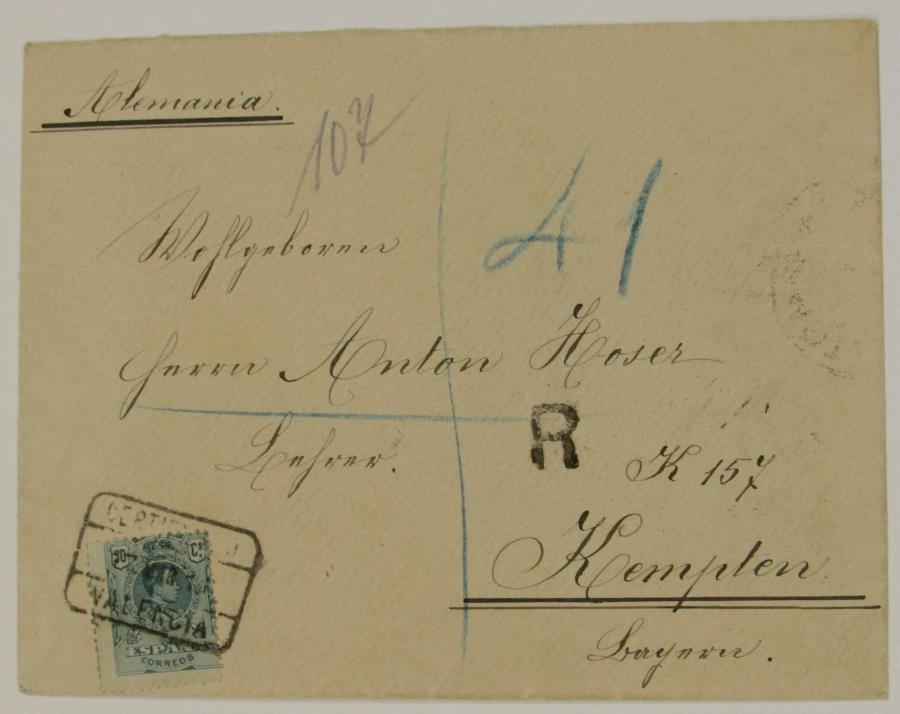 Alemania.
107
41
Wohlgeboren
Herrn Anton Hoser
Lehrer.
R
K 157
Kempten
Bayern.
50 Cs
VALENCIA
ESPAÑA
CORREOS